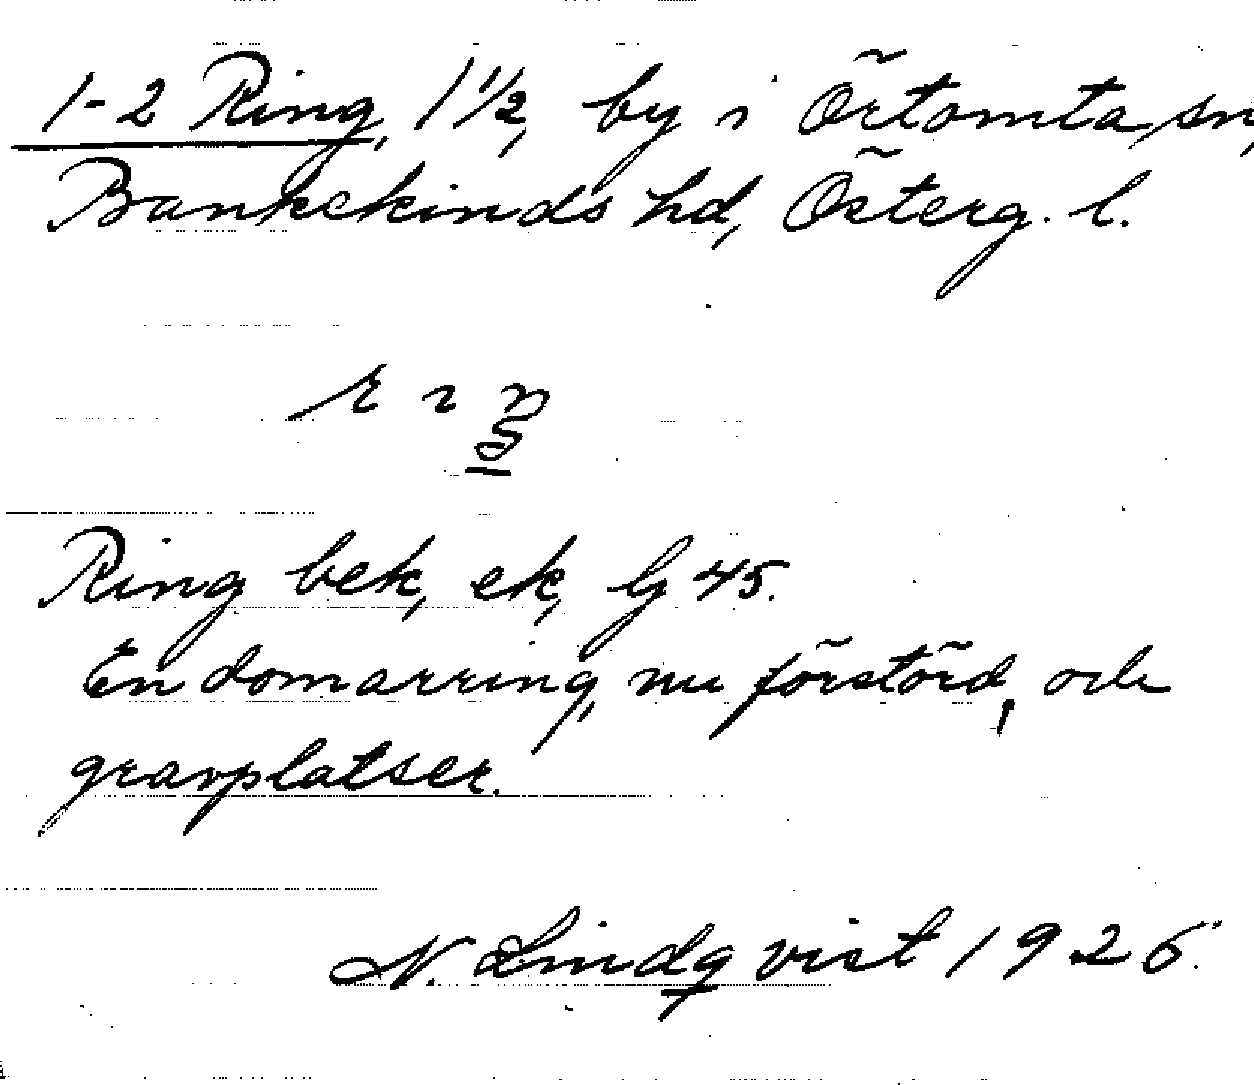 1-2 Ring, 1 1/2, by i Örtomta sn,
Bankekinds hd, Österg. l.
Ring bek, ek, lg 45.
En domarring, nu förstörd, och
gravplatser.
N. Lindqvist 1926.